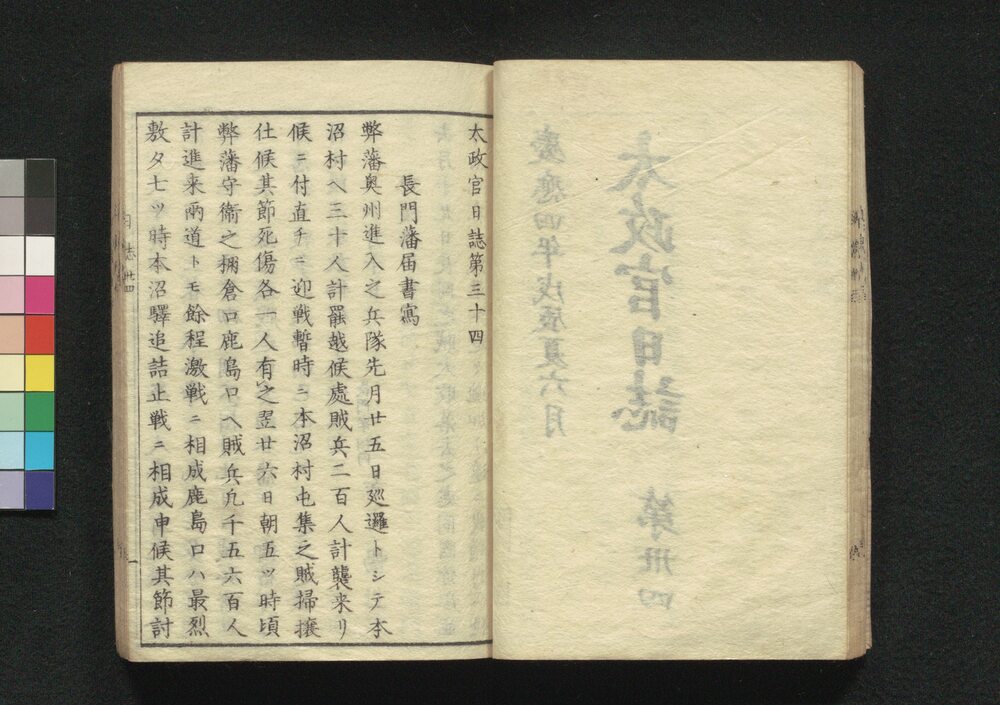 慶應四年戊辰夏六月
太政官日誌 第卅四
太政官日誌第三十四
長門藩届書寫
弊藩奥州進入之兵隊先月廿五日廵邏トシテ本
沼村ヘ三十人計罷越候處賊兵二百人計襲来リ
候ニ付直チニ迎戦暫時ニ本沼村屯集之賊掃攘
仕候其節死傷各一人有之翌廿六日朝五ツ時頃
弊藩守衛之棚倉口鹿島口ヘ賊兵凡千五六百人
計進来両道トモ餘程激戦ニ相成鹿島口ハ最烈
敷夕七ツ時本沼驛追詰止戦ニ相成申候其節討
日誌 卅四
一